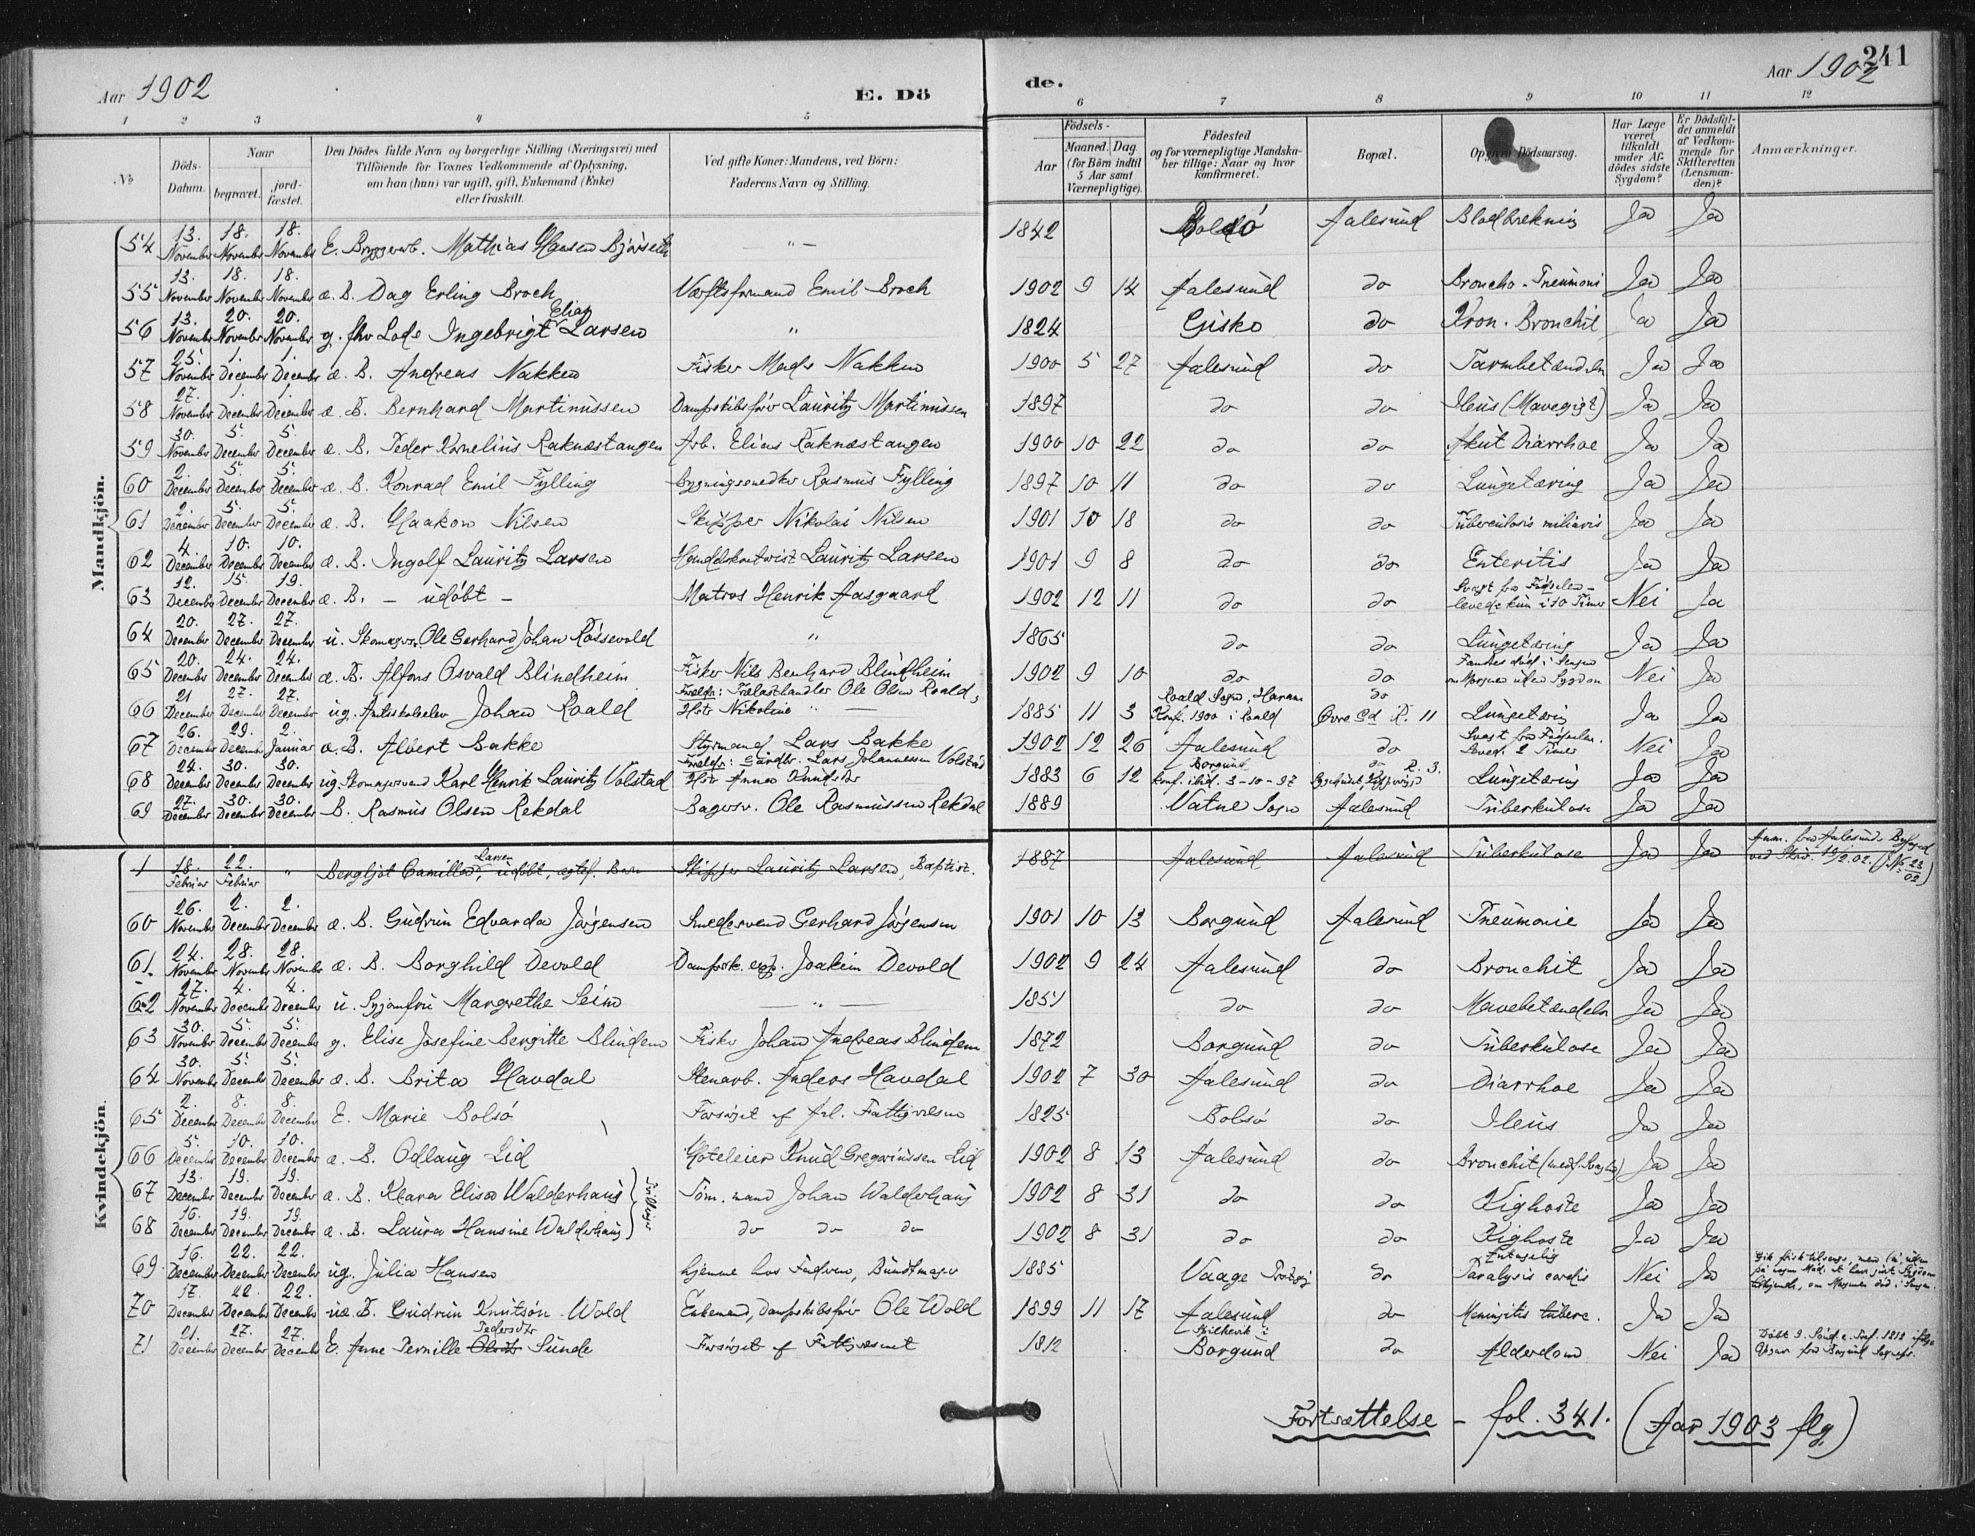 Aar 1902
E. Dö
de.
Aar 1902
241
1 2 3 4 5 6 7 8 9 10 11 12
No
Döds-Datum.
Naar
begravet.
jordfæstet.
Den Dödes fulde Navn og borgerlige Stilling (Næringsvei) med
Tilföiende for Voxnes Vedkommende af Oplysning,
om han (hun) var ugift, gift, Enkemand (Enke)
eller fraskilt.
Ved gifte Koner: Mandens, ved Börn:
Faderens Navn og Stilling.
Födsels-
Aar
Maaned. Dag
(for Börn indtil
5 Aar samt
Værnepligtige).
Födested
og for værnepligtige Mandska-
ber tillige: Naar og hvor
konfirmeret.
Bopæl.
Opgiven Dödsaarsag.
Har Læge
været
tilkaldt
under Af-
dödes sidste
Sygdom?
Er Dödsfal-
det anmeldt
af Vedkom-
mende for
Skifteretten
(Lensman-
den)?
Anmærkninger.
Mandkjön.
54 13. November 18. November 18. November E. Mathias Hansen Bjørseth - " - 1842 Aalesund Blodbrekning Ja Ja
55 13. November 18. November 18. November æ. B. Dag Erling Broch Værftsformand Emil Broch 1902 9 14 Aalesund do Broncho-Pneumoni Ja Ja
56 13. November 20. November 20. November g. fhv Lods Ingebrigt Elias Larsen " 1824 Giske do Kron. Bronchit Ja Ja
57 25. November 1. December 1. December æ. B. Andreas Nakken Fisker Mads Nakken 1900 5 27 Aalesund do Tarmbetændelse Ja Ja
58 27. November 1. December 1. December æ. B. Bernhard Martinussen Dampskibsfører Lauritz Martinussen 1897 do do Ileus (Mavegigt) Ja Ja
59 30. November 5. December 5. December æ. B. Peder Kornelius Raknæstangen Arb. Elias Raknæstangen 1900 10 22 do do Akut Diarrhoe Ja Ja
60 2. December 5. December 5. December æ. B. Konrad Emil Fylling Bygningssnedker Rasmus Fylling 1897 10 11 do do Lungetæring Ja Ja
61 2. December 5. December 5. December æ. B. Haakon Nilsen Skipper Nikolai Nilsen 1901 10 18 do do Tuberculosis miliaris Ja Ja
62 4. December 10. December 10. December æ. B. Ingolf Lauritz Larsen Lauritz Larsen 1901 9 8 do do Enteritis Ja Ja
63 12. December 15 December 19. December æ. B. - udøbt - Matros Henrik Aasgaard 1902 12 11 do do Svagt fra Fødselen - levede kun i 10 Timer Nei Ja
64 20. December 27. December 27. December u. Ole Gerhard Johan Røssevold " 1865 do do Lungetæring Ja Ja
65 20. December 24. December 24. December æ. B. Alfons Osvald Blindheim Fisker Nils Benhard Blindheim 1902 9 10 do do Fandtes død i Sengen om Morgenen uden Sygdom Nei Ja
66 21 December 27. December 27. December ug. Amtsskoleelev Johan Roald Forældr: Trælasthandler Ole Olsen Roald, Hstr Nikoline " 1885 11 3 Roald Sogn, Haram Konf. 1900 i Roald do Øvre Gd R. 11 Lungetæring Ja Ja
67 26. December 29. December 2. Januar æ. B. Albert Bakke Styrmand Lars Bakke 1902 12 26 Aalesund do Svagt fra Fødselen. Leved. 2 Timer Nei Ja
68 24. December 30. December 30. December ug. Skomagersvend Karl Henrik Lauritz Volstad Forældr: Gårdbr. Lars Johannessen Volstad Hstr Anna Knudsdtr 1883 6 12 Borgund konf. ibid. 3-10-97 do R. 3. Lungetæring Ja Ja
69 27. December 30. December 30. December B. Rasmus Olsen Rekdal Bagersv. Ole Rasmussen Rekdal 1889 Vatne Sogn Aalesund Tuberkulose Ja Ja
Kvindekjön.
1 18. Februar 22. Februar " Bergljot Camilla Larsen, udøbt, ægtef. Barn Skipper Lauritz Larsen, Baptist. 1887 Aalesund Aalesund Tuberkulose Ja Ja Anm. fra Aalesunds ved Skriv. 19/2.02. (J. No 23/02)
60 26. November 2. December 2. December æ. B. Gudrun Edvarda Jørgensen Smedesvend Gerhard Jørgensen 1901 10 13 Borgund Aalesund Pneumonie Ja Ja
61. 24. November 28. November 28. November æ. B. Borghild Devold Dampsk. exp. Joakim Devold 1902 9 24 Aalesund do Bronchit Ja Ja
62 27. November 4. December 4. December u. Syjomfru Margrethe Seim - " - 1851 do do Mavebetændelse Ja Ja
63 30. November 5. December 5. December g. Elise Josefine Bergitte Blindem Fisker Johan Andreas Blindem 1872 Borgund do Tuberkulose Ja Ja
64 30. November 5 December 5. December æ. B. Brita Havdal Stenarb. Anders Havdal 1902 7 30 Aalesund do Diarrhoe Ja Ja
65 2. December 8. December 8. December E. Marie Bolsø Forsørget af Aal. Fattigvæsen 1825 Bolsø do Ileus Ja Ja
66 5. December 10. December 10. December æ. B. Odlaug Lid Hoteleier Knud Gregoriussen Lid 1902 8 13 Aalesund do Bronchit (medf. Svagh) Ja Ja
67 13. December 19. December 19. December æ. B. Klara Elisa Walderhaug Tvillinger Tøm. mand Johan Walderhaug 1902 8 31 do do Kighoste Ja Ja
68 16. December 19. December 19. December æ. B. Laura Hansine Walderhaug do do do 1902 8 31 do do Kighoste Ja Ja
69. 16. December 22. December 22. December ug. Julia Hansen hjemme hos Faderen, Buntmager 1885 Vaage do Paralysis cordis Nei Ja
70 17. December 22. December 22. December uæ. B. Gudrun Knutson Wold Enkemand, Dampskibsfører Ole Wold 1899 11 17 Aalesund do Meningitis tuberc. Ja Ja
71 21. December 27. December 27. December E. Anne Pernille Olsdtr Pedersdtr Sunde Forsørget af Fattigvæsnet 1812 Borgund do Alderdom Nei Ja
Fortsættelse - fol. 341. (Aar 1903 flg)